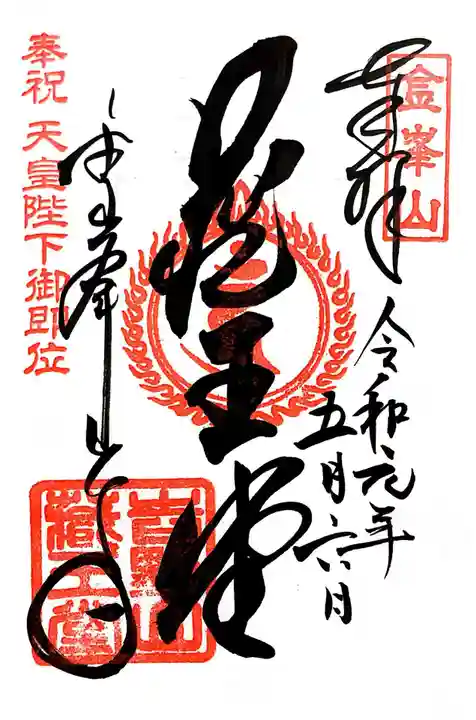 金峯山
奉拝
令和元年
五月六日
蔵王堂
金峯山寺
吉野山
藏王堂
奉祝 天皇陛下御即位